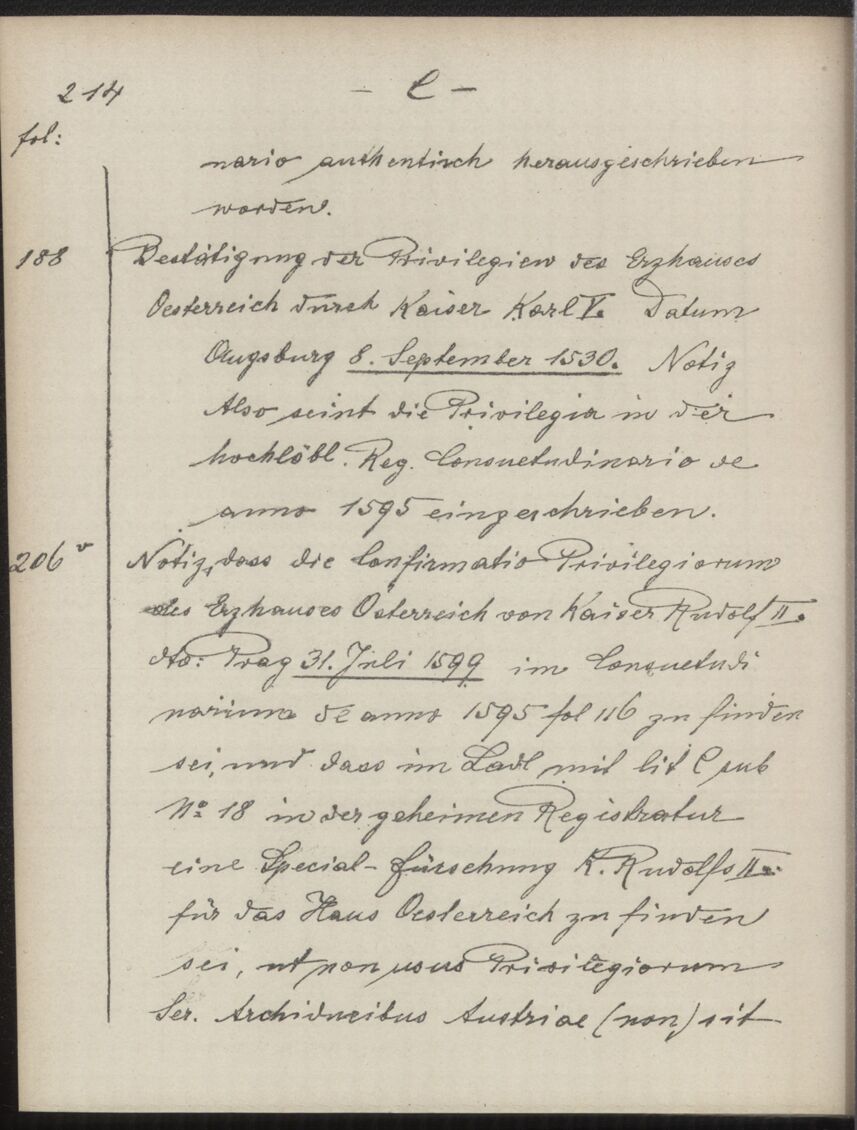 214 - C -
fol:
nario authentisch herausgeschrieben
worden.
188 Bestätigung der Privilegien des Erzhauses
Oesterreich durch Kaiser Karl V. Datum
Augsburg 8. September 1530. Notiz
Also seint die Privilegia in der
hochlöbl. Reg. Consuetudinario de
anno 1595 eingeschrieben.
206 v Notiz, dass die Confirmatio Privilegiorum
des Erzhauses Österreich von Kaiser Rudolf II.
dto: Prag 31. Juli 1599 im Consuetudi
narium de anno 1595 fol 116 zu finden
sei, und dass im Ladl mit lit C sub
No 18 in der geheimen Registratur
eine Special-Fürsehung K. Rudolfs II.
für das Haus Oesterreich zu finden
sei, ut non usus Privilegiorum
Ser. Archiducibus Austriae (non) sit